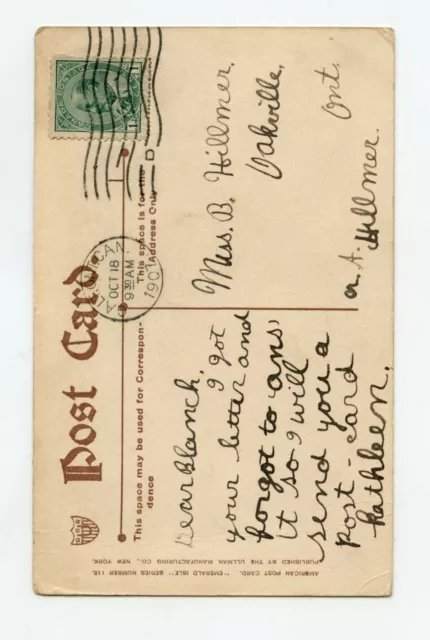 Post Card.
This space may be used for Correspon-
dence
This space is for the
Address Only
OCT 18
9 30 AM
Dear Blanch,
I got
your letter and
forgot to ans'
it so I will
send you a
post-card
Kathleen.
Miss. B. Hillmer.
Oakville,
Ont.
A. Hillmer.
AMERICAN POST CARD. "EMERALD ISLE" SERIES NUMBER 115.
PUBLISHED BY THE ULLMAN MANUFACTURING CO., NEW YORK.